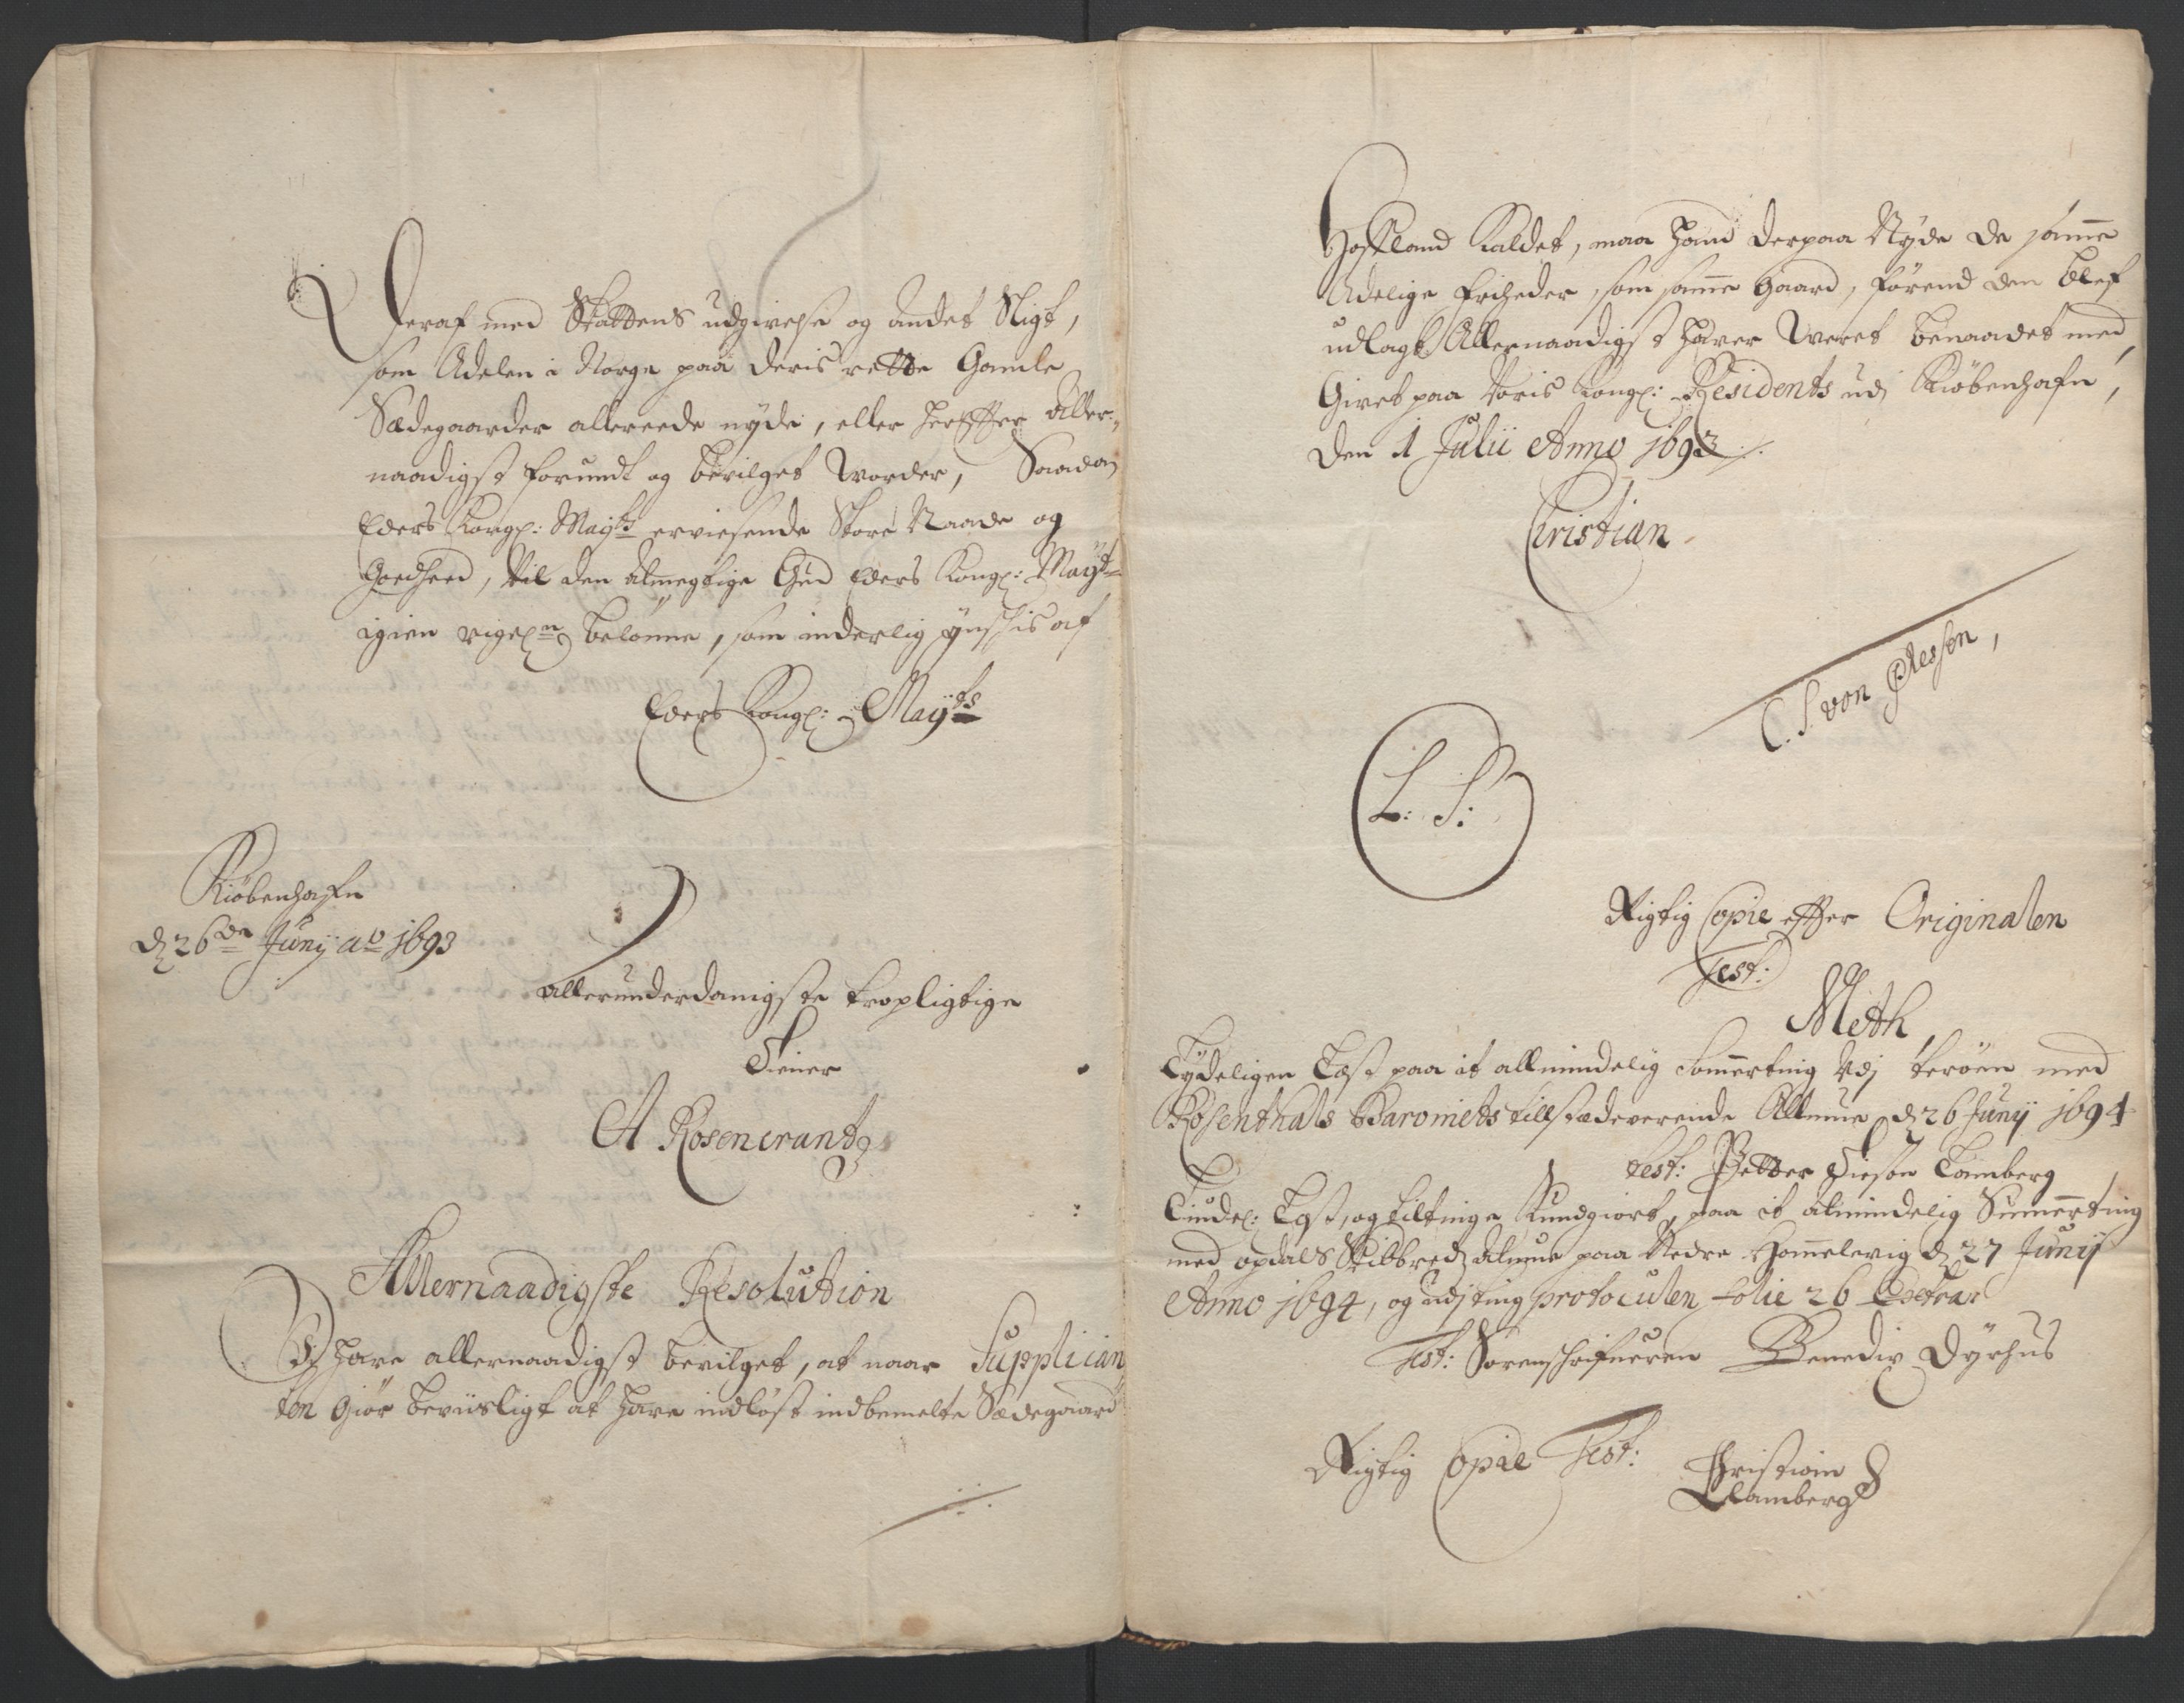 Deraf med Skattens udgivelse og andet Sligt,
som Adelen i Norge paa deris rette Gamle
Sædegaarder allereede nyder, eller herefter aller-
naadigst forundt og bevilget worder, Saadan
Eders Kongl: Mayts erviesende Store Naade og
Goedheed, vil den almegtige Gud Eders Kongl: Mayt
igien rigel. belønne, som inderlig ynschis af
Eders Kongl: Mayts
Kiøbenhafn
d. 26de Junij ao 1693
allerunderdanigste tropligtige
Tiener
A Rosencrantz
Allernaadigste Resolution
Vi have allernaadigst bevilget, at naar Supplican
ten giør beviisligt at have indløst indbemelte Sædegaard
Hafsland Kaldet, maa hand derpaa Nyde de samme
Adelige friheder, som samme Gaard, førend den blef
udlagt Allernaadigst haver Weret benaadet med,
Givet paa Voris Kongl: Residents udj Kiøbenhafn,
Den 1 Julii Anno 1693
Christian
C. S. von Plessen,
L: S:
Rigtig Copie effter Originalen
Test:
Meth
Tydeligen Læst paa it allmindelig Sommerting Vdj Terøen med
Rosenthals Baroniets tillstædeverende Allmue d. 26 Junij 1694
Test: Petter Lamberg
Tindel: Læst, og til tinge Kundgiort, paa it almindelig Sumerting
med opdals Skibbred almue paa Nedre d. 27 Junij
Anno 1694, og udj ting protoculen folie 26
Test: Sorenschrifueren Dyrhus
Rigtig Copie Test: Christian
Lamberg